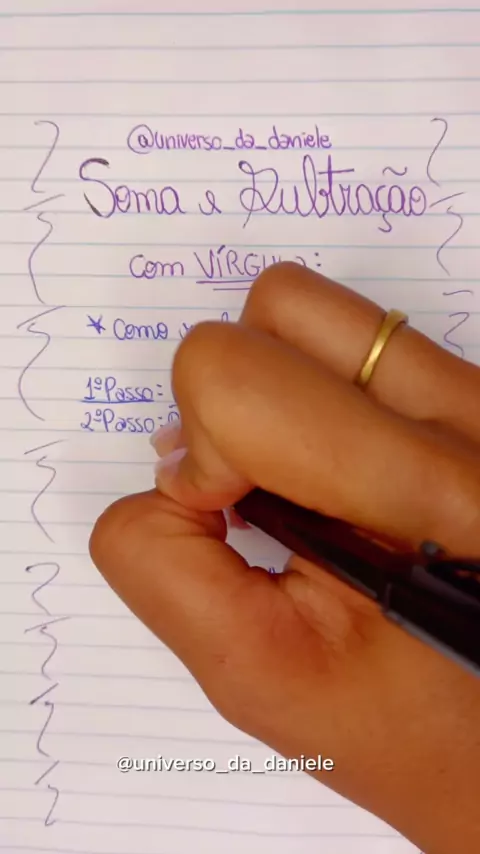 @universo_da_daniele
Soma e Subtração
com VÍRGULA:
* Como
1º Passo:
2º Passo:
@universo_da_daniele